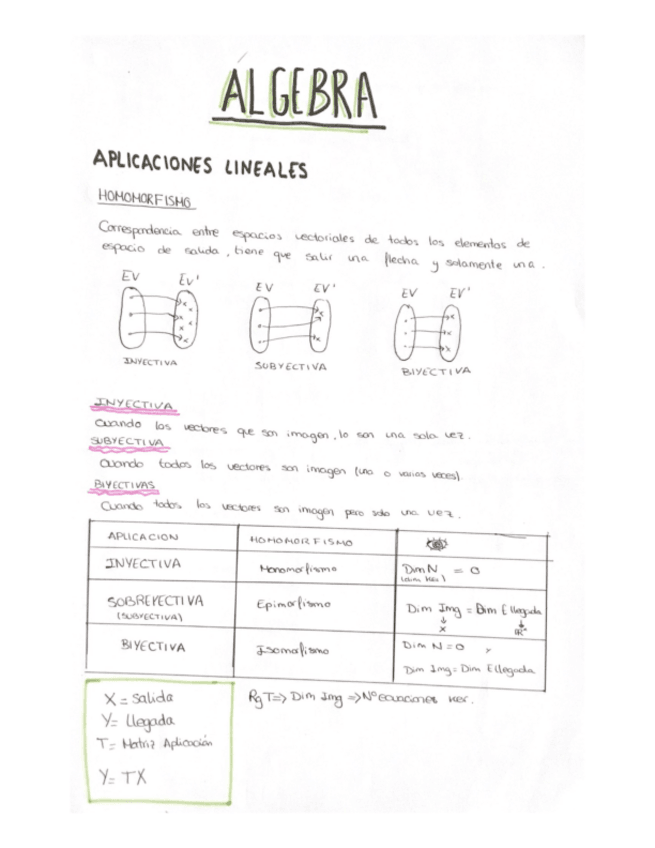 ALGEBRA
APLICACIONES LINEALES
HOMOMORFISMO
Correspondencia entre espacios vectoriales de todos los elementos de
espacio de salida, tiene que salir una flecha y solamente una.
EV EV' EV EV' EV EV'
INYECTIVA SUBYECTIVA BIYECTIVA
INYECTIVA
Cuando los vectores que son imagen, lo son una sola vez.
SUBYECTIVA
Cuando todos los vectores son imagen (una o varias veces)
BIYECTIVAS
Cuando todos los vectores son imagen pero solo una vez.
APLICACION HOMOMORFISMO
INYECTIVA Monomorfismo Dim N = 0
(dim Ker)
SOBREYECTIVA Epimorfismo Dim Img = Dim E llegada
(SUBYECTIVA) ↓ X ↓ IR
BIYECTIVA Isomorfismo Dim N = 0 y
Dim Img = Dim E llegada
X = Salida
Y = Llegada
T = Matriz Aplicación
Y = TX
RgT => Dim Img => Nº ecuaciones Ker.